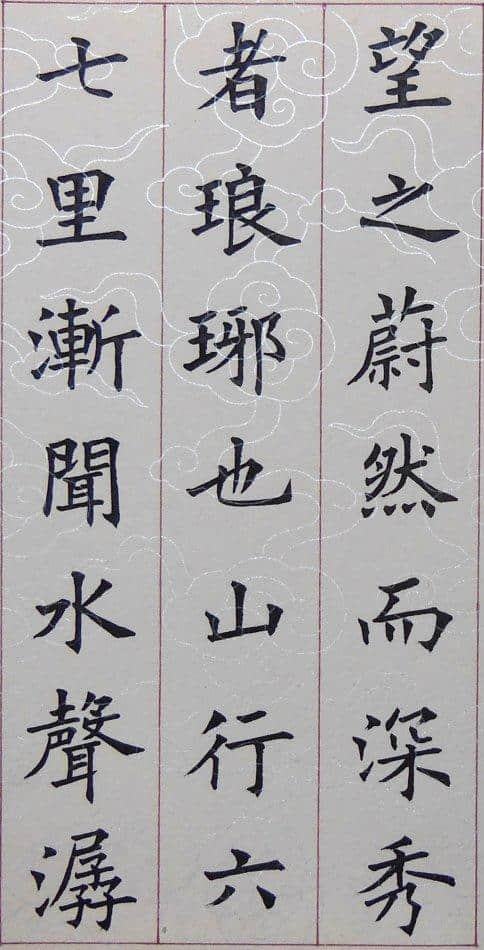 望之蔚然而深秀
者琅琊也山行六
七里漸聞水聲潺